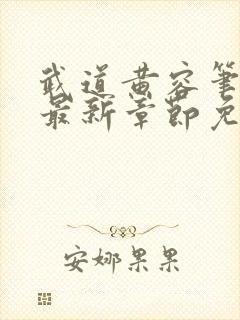 武道黄容笔
最新章节免
安娜果果